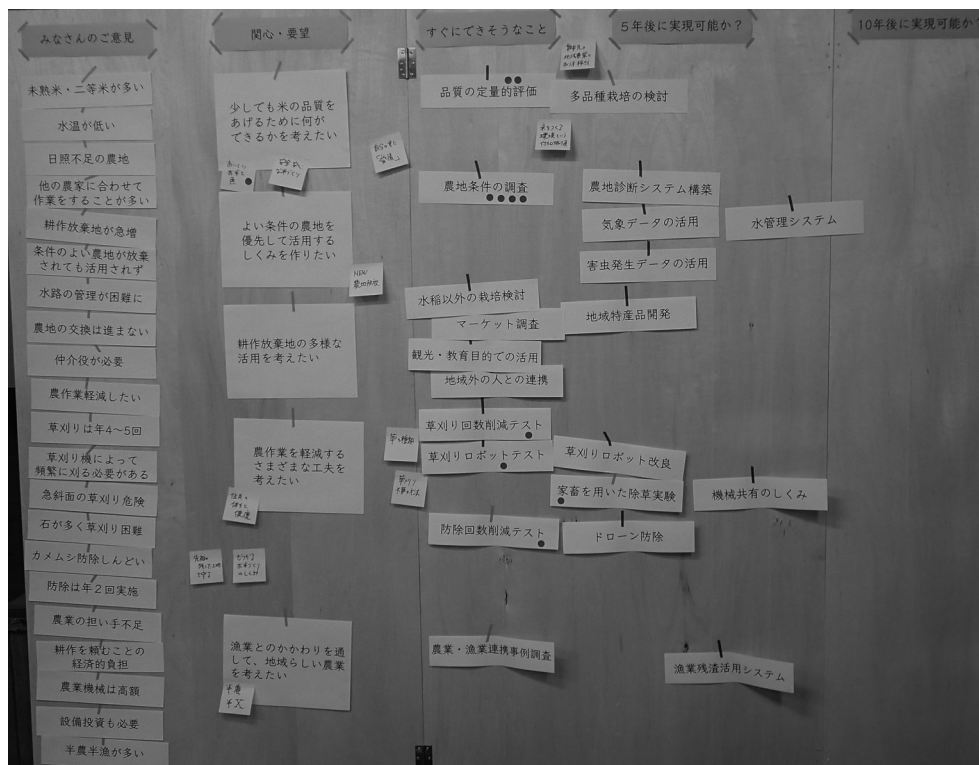 みなさんのご意見
未熟米・二等米が多い
水温が低い
日照不足の農地
他の農家に合わせて
作業をすることが多い
耕作放棄地が急増
条件のよい農地が放棄
されても活用されず
水路の管理が困難に
農地の交換は進まない
仲介役が必要
農作業軽減したい
草刈りは年4〜5回
草刈り機によって
頻繁に刈る必要がある
急斜面の草刈り危険
石が多く草刈り困難
カメムシ防除しんどい
防除は年2回実施
農業の担い手不足
耕作を頼むことの
経済的負担
農業機械は高額
設備投資も必要
半農半漁が多い
関心・要望
少しでも米の品質を
あげるために何が
できるかを考えたい
よい条件の農地を
優先して活用する
しくみを作りたい
NEW
耕作放棄地の多様な
活用を考えたい
農作業を軽減する
さまざまな工夫を
考えたい
漁業とのかかわりを通
して、地域らしい農業
を考えたい
半農
半X
すぐにできそうなこと
品質の定量的評価
農地条件の調査
水稲以外の栽培検討
マーケット調査
観光・教育目的での活用
地域外の人との連携
草刈り回数削減テスト
草刈りロボットテスト
防除回数削減テスト
農業・漁業連携事例調査
5年後に実現可能か？
多品種栽培の検討
農地診断システム構築
気象データの活用
害虫発生データの活用
地域特産品開発
草刈りロボット改良
家畜を用いた除草実験
ドローン防除
10年後に実現可能か？
水管理システム
機械共有のしくみ
漁業残渣活用システム